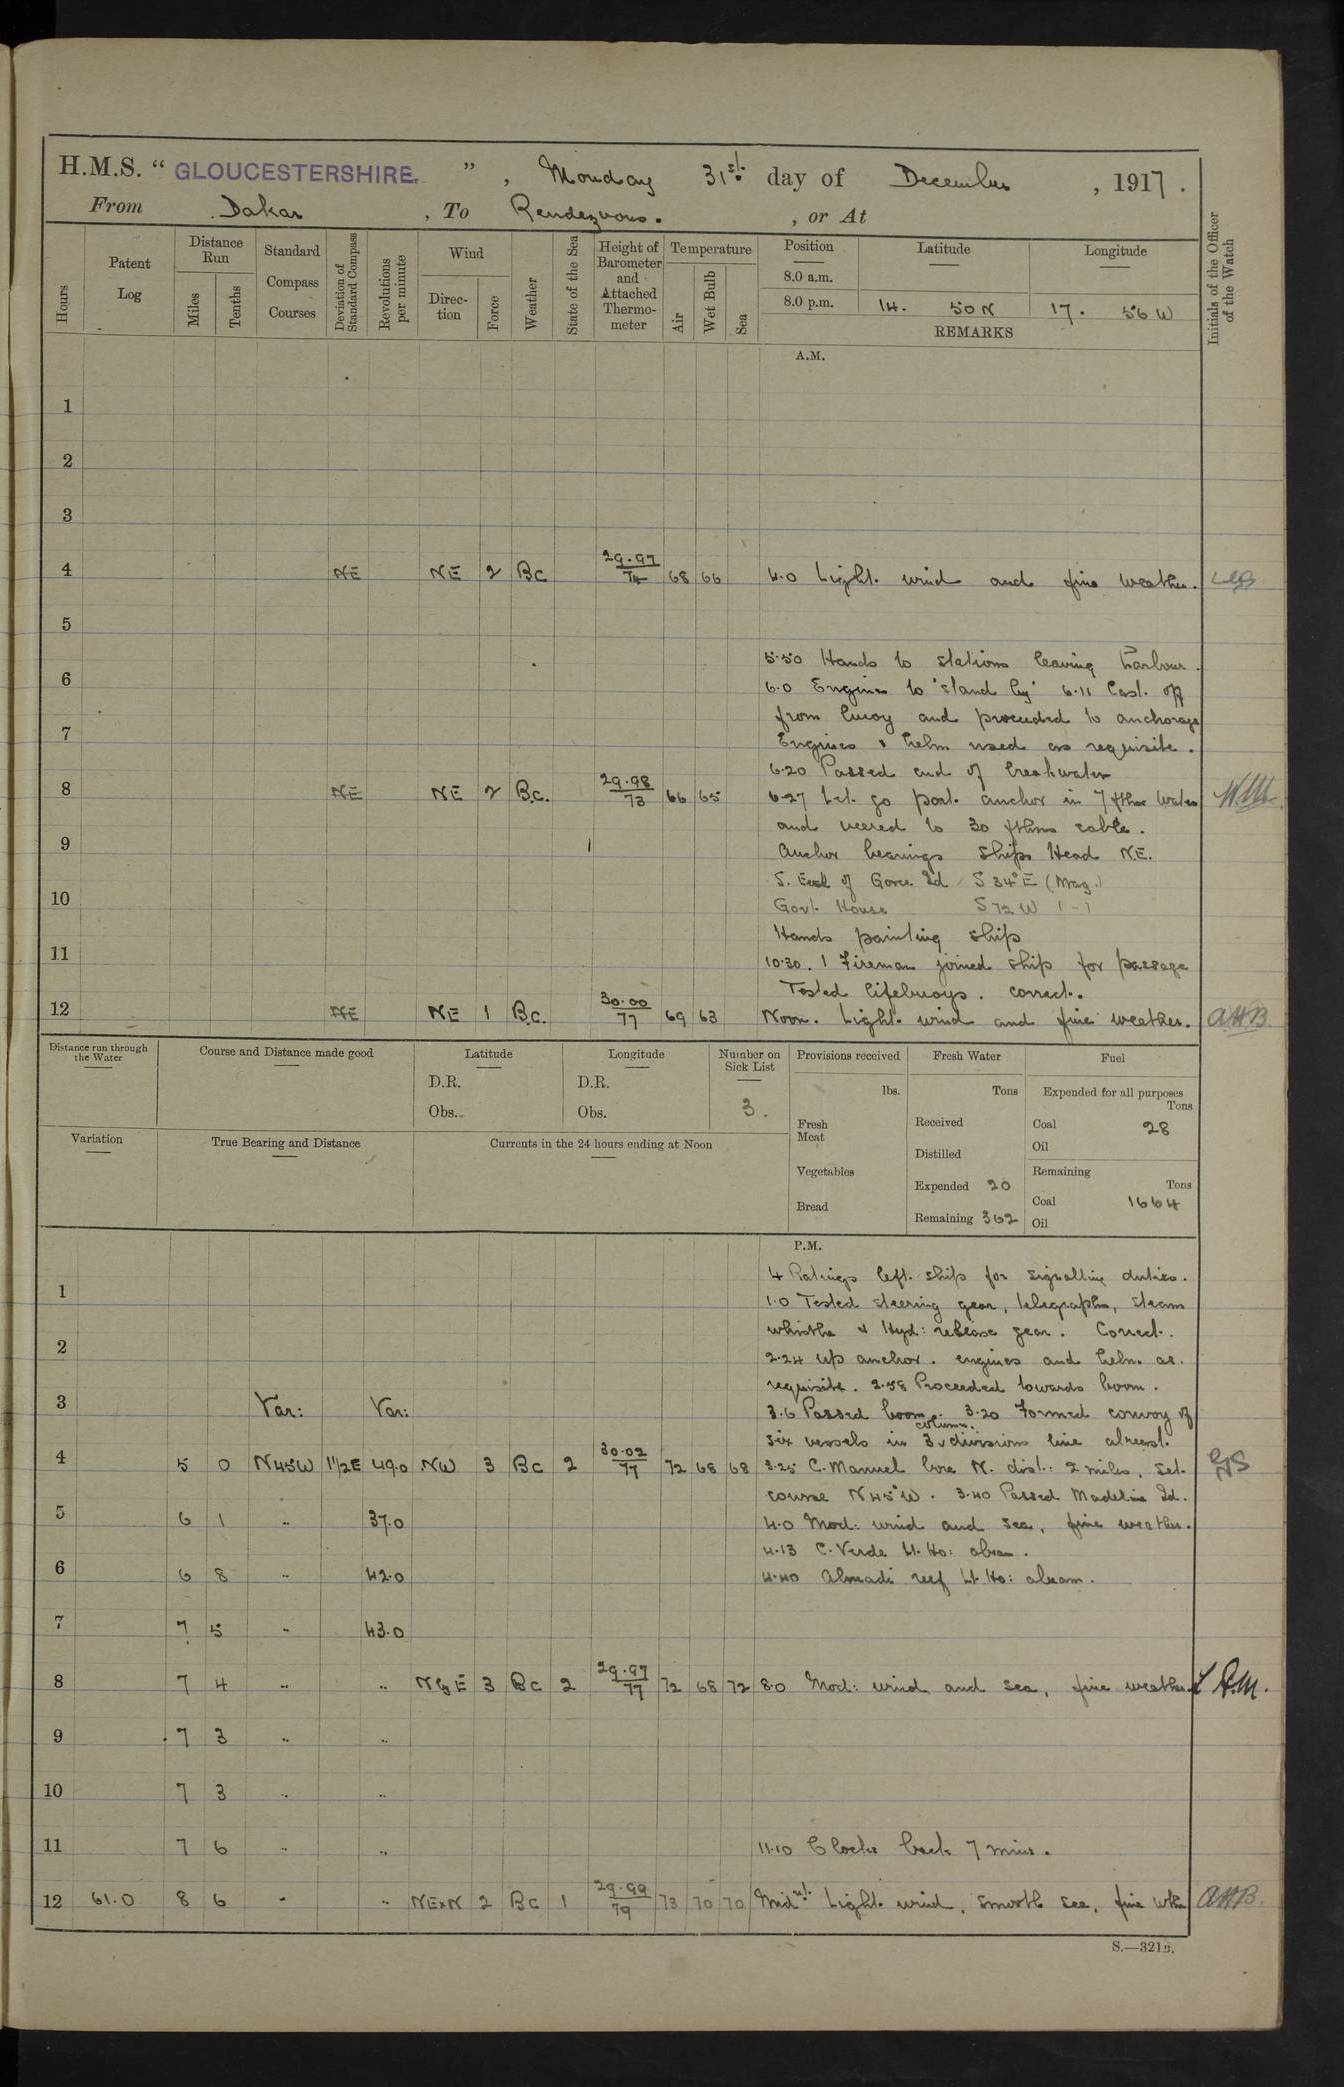 H.M.S. “ GLOUCESTERSHIRE. ” , Monday 31st day of December , 1917 .
From Dakar , To Rendezvous . , or At
Hours
Patent Log
Distance Run
Miles
Tenths
Standard Compass Courses
Deviation of Standard Compass
Revolutions per minute
Wind
Direction
Force
Weather
State of the Sea
Height of Barometer and Attached Thermometer
Temperature
Air
Wet Bulb
Sea
Position
8.0 a.m.
8.0 p.m.
Latitude
14. 50 N
Longitude
17. 56 W
Initials of the Officer of the Watch
REMARKS
A.M.
1
2
3
4 NE NE 2 Bc 29.97/74 68 66 4.0 Light wind and fine weather.
5
5.50 Hands to stations leaving harbour.
6
6.0 Engines to 'stand by' 6.11 Cast off
from buoy and proceeded to anchorage
7
Engines & helm used as requisite.
6.20 Passed end of breakwater
8 NE NE 2 Bc. 29.98/73 66 65 6.27 Let go port anchor in 7 fthms water
and veered to 30 fthms cable.
9
Anchor bearings Ships Head N.E.
S. End of Goree Id S 34° E (Mag.)
10
Govt. House S 72 W ( - )
Hands painting ship
11
10.30. 1 Fireman joined ship for passage
Tested lifebuoys. correct.
12 NE NE 1 Bc. 30.00/77 69 63 Noon. Light wind and fine weather. AHB
Distance run through the Water
Course and Distance made good
Latitude
D.R.
Obs.
Longitude
D.R.
Obs.
Number on Sick List
3.
Provisions received
lbs.
Fresh Meat
Vegetables
Bread
Fresh Water
Tons
Received
Distilled
Expended 20
Remaining 362
Fuel
Expended for all purposes
Tons
Coal 28
Oil
Remaining
Tons
Coal 1664
Oil
Variation
True Bearing and Distance
Currents in the 24 hours ending at Noon
P.M.
4 Ratings left ship for signalling duties.
1
1.0 Tested steering gear, telegraphs, steam
whistle & Hyd: release gear. Correct.
2
2.24 up anchor. engines and helm as
requisite. 2.58 Proceeded towards boom.
3 Var: Var: 3.6 Passed boom. 3.20 Formed convoy of
six vessels in 3 column divisions line abreast.
4 5 0 N45W 1½E 49.0 NW 3 Bc 2 30.02/77 72 68 68 3.25 C. Manuel bore N. dist: 2 miles, set
course N 45° W. 3.40 Passed Madeline Id.
5 6 1 " 37.0 4.0 Mod: wind and sea, fine weather.
4.13 C. Verde Lt. Ho: abeam.
6 6 8 " 42.0 4.40 Almadi reef Lt. Ho: abeam.
7 7 5 " 43.0
8 7 4 " " N by E 3 Bc 2 29.97/77 72 68 72 8.0 Mod: wind and sea, fine weather.
9 7 3 " "
10 7 3 " "
11 7 6 " " 11.10 Clocks back 7 mins.
12 61.0 8 6 " " NExN 2 Bc 1 29.99/79 73 70 70 Midnt. Light wind, smooth sea, fine wthr AHB.
S.—321B.